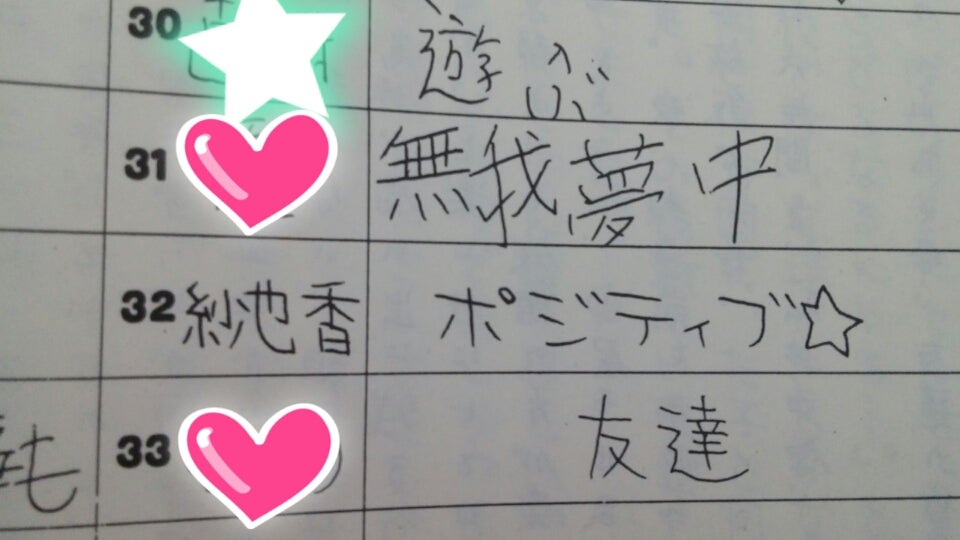 30 遊ぶ
31 無我夢中
32 紗池香 ポジティブ☆
33 友達